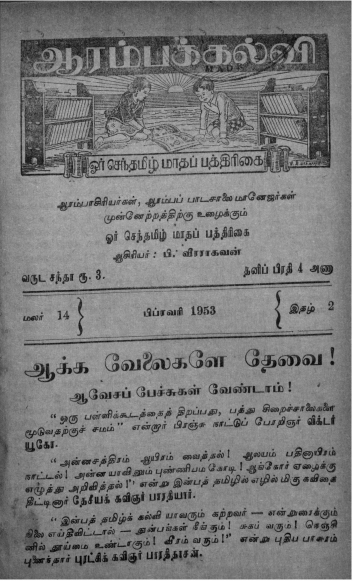 ஆரம்பக்கல்வி
ஓர் செந்தமிழ் மாதப் பத்திரிகை
ஆரம்பாசிரியர்கள், ஆரம்பப் பாடசாலை மானேஜர்கள்
முன்னேற்றத்திற்கு உழைக்கும்
ஓர் செந்தமிழ் மாதப் பத்திரிகை
ஆசிரியர் : பி. வீரராகவன்
வருட சந்தா ரூ. 3. தனிப் பிரதி 4 அணா
மலர் 14 பிப்ரவரி 1953 இதழ் 2
ஆக்க வேலைகளே தேவை !
ஆவேசப் பேச்சுகள் வேண்டாம் !
“ஒரு பள்ளிக்கூடத்தைத் திறப்பது, பத்து சிறைச்சாலைகளை
மூடுவதற்குச் சமம்” என்றார் பிரஞ்சு நாட்டுப் பேரறிஞர் விக்டர்
யூகோ.
“அன்னசத்திரம் ஆயிரம் வைத்தல் ! ஆலயம் பதினாயிரம்
நாட்டல் ! அன்ன யாவினும் புண்ணியம கோடி ! ஆங்கோர் ஏழைக்கு
எழுத்து அறிவித்தல் !” என்று இன்பத் தமிழில் எழில் மிகு கவிதை
தீட்டினார் தேசீயக் கவிஞர் பாரதியார்.
“இன்பத் தமிழ்க் கல்வி யாவரும் கற்றவர் — என்றுரைக்கும்
நிலை எய்திவிட்டால் — துன்பங்கள் நீங்கும் ! சுகம் வரும் ! நெஞ்சி
னில் தூய்மை உண்டாகும் ! வீரம் வரும் !” என்று புதிய பாசுரம்
புனைந்தார் புரட்சிக் கவிஞர் பாரதிதாசன்.